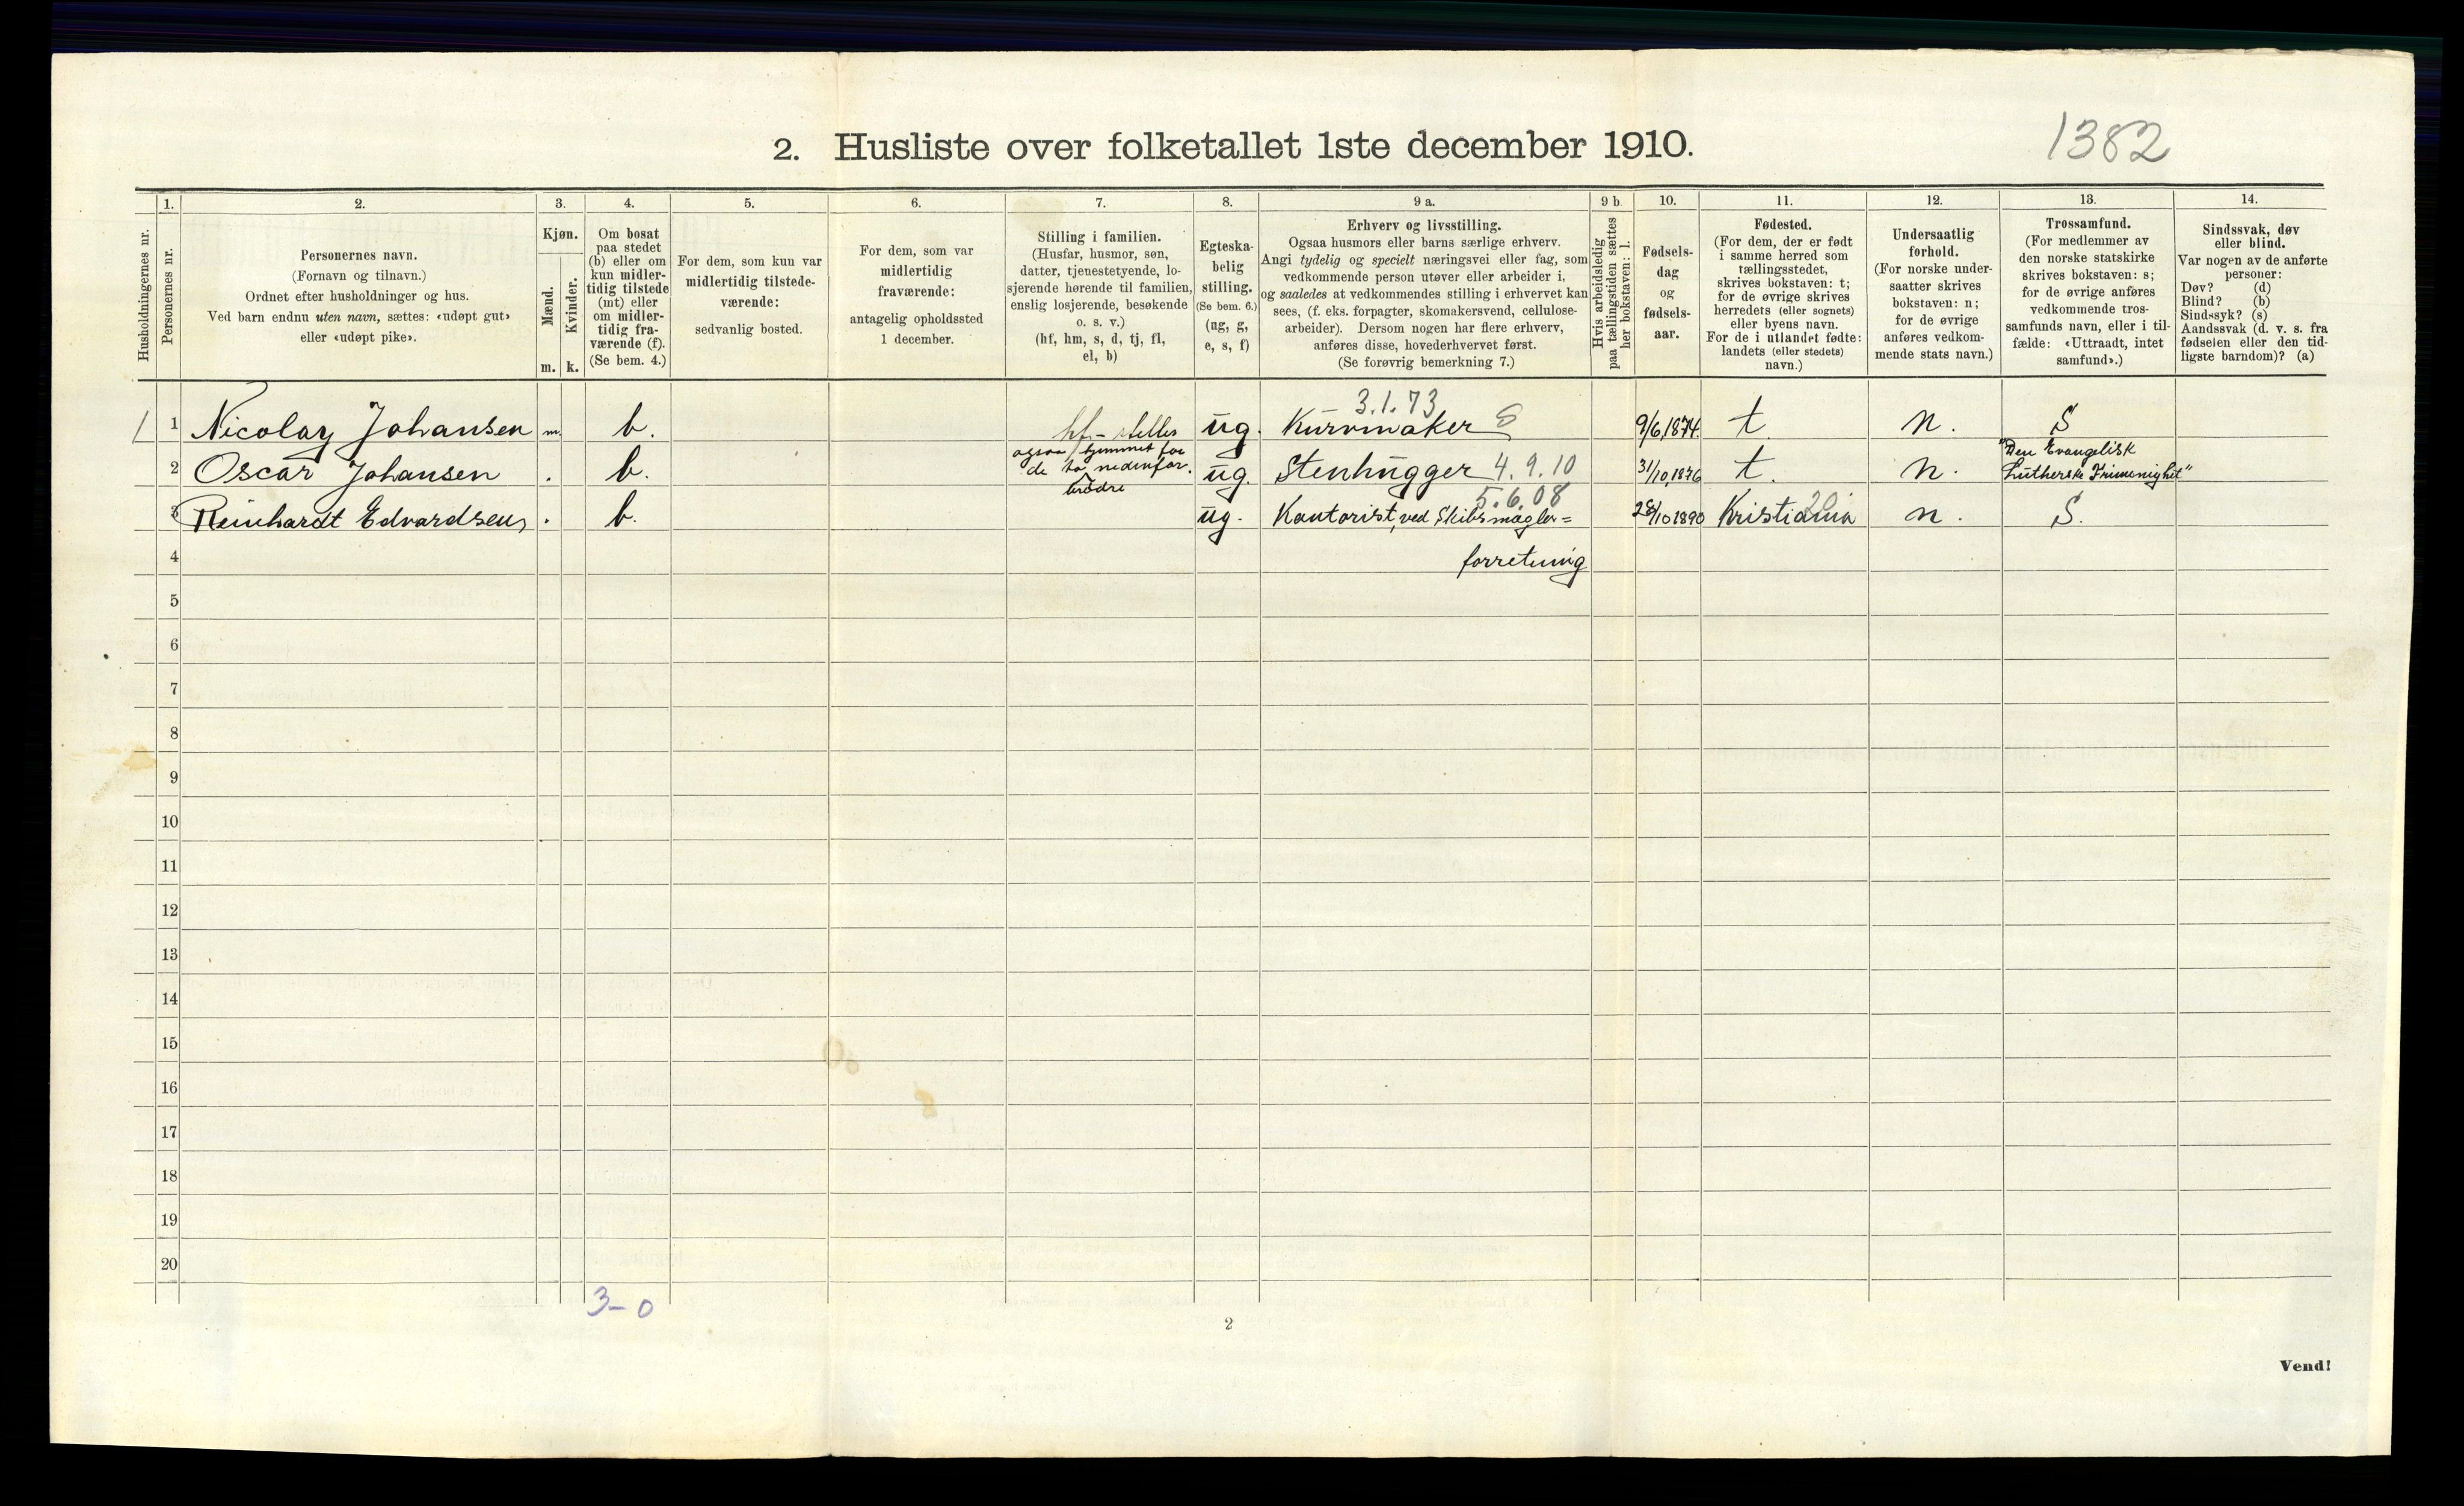 2. Husliste over folketallet 1ste december 1910.
1382
Husholdningernes nr.
1.
Personernes nr.
2.
Personernes navn.
(Fornavn og tilnavn.)
Ordnet efter husholdninger og hus.
Ved barn endnu uten navn, sættes: «udøpt gut»
eller «udøpt pike».
3.
Kjøn.
Mænd.
Kvinder.
m. k.
4.
Om bosat
paa stedet
(b) eller om
kun midler-
tidig tilstede
(mt) eller
om midler-
tidig fra-
værende (f).
(Se bem. 4.)
5.
For dem, som kun var
midlertidig tilstede-
værende:
sedvanlig bosted.
6.
For dem, som var
midlertidig
fraværende:
antagelig opholdssted
1 december.
7.
Stilling i familien.
(Husfar, husmor, søn,
datter, tjenestetyende, lo-
sjerende hørende til familien,
enslig losjerende, besøkende
o. s. v.)
(hf, hm, s, d, tj, fl,
el, b)
8.
Egteska-
belig
stilling.
(Se bem. 6.)
(ug, g,
e, s, f)
9 a.
Erhverv og livsstilling.
Ogsaa husmors eller barns særlige erhverv.
Angi tydelig og specielt næringsvei eller fag, som
vedkommende person utøver eller arbeider i,
og saaledes at vedkommendes stilling i erhvervet kan
sees, (f. eks. forpagter, skomakersvend, cellulose-
arbeider). Dersom nogen har flere erhverv,
anføres disse, hovederhvervet først.
(Se forøvrig bemerkning 7.)
9 b.
Hvis arbeidsledig
paa tællingstiden sættes
her bokstaven: l.
10.
Fødsels-
dag
og
fødsels-
aar.
11.
Fødested.
(For dem, der er født
i samme herred som
tællingsstedet,
skrives bokstaven: t;
for de øvrige skrives
herredets (eller sognets)
eller byens navn.
For de i utlandet fødte:
landets (eller stedets)
navn.)
12.
Undersaatlig
forhold.
(For norske under-
saatter skrives
bokstaven: n;
for de øvrige
anføres vedkom-
mende stats navn.)
13.
Trossamfund.
(For medlemmer av
den norske statskirke
skrives bokstaven: s;
for de øvrige anføres
vedkommende tros-
samfunds navn, eller i til-
fælde: «Uttraadt, intet
samfund».)
14.
Sindssvak, døv
eller blind.
Var nogen av de anførte
personer:
Døv? (d)
Blind? (b)
Sindssyk? (s)
Aandssvak (d. v. s. fra
fødselen eller den tid-
ligste barndom)? (a)
3.1.73
1 1 Nicolay Johansen m. b. hf. - steller ug. Kurvmaker 9/6 1874. t. n. S
ogsaa hjemmet for
de to nedenfor.
brødre
"Den Evangelisk
2 Oscar Johansen . b. ug. Stenhugger 4.9.10 31/10 1876 t. n. Lutherske Frimenighet"
5.6.08
3 Reinhardt Edvardsen, . b. ug. Kontorist, ved Skibsmægler= 28/10 1890 Kristiania n. S.
4 forretning
5
6
7
8
9
10
11
12
13
14
15
16
17
18
19
20
3-0
2
Vend!